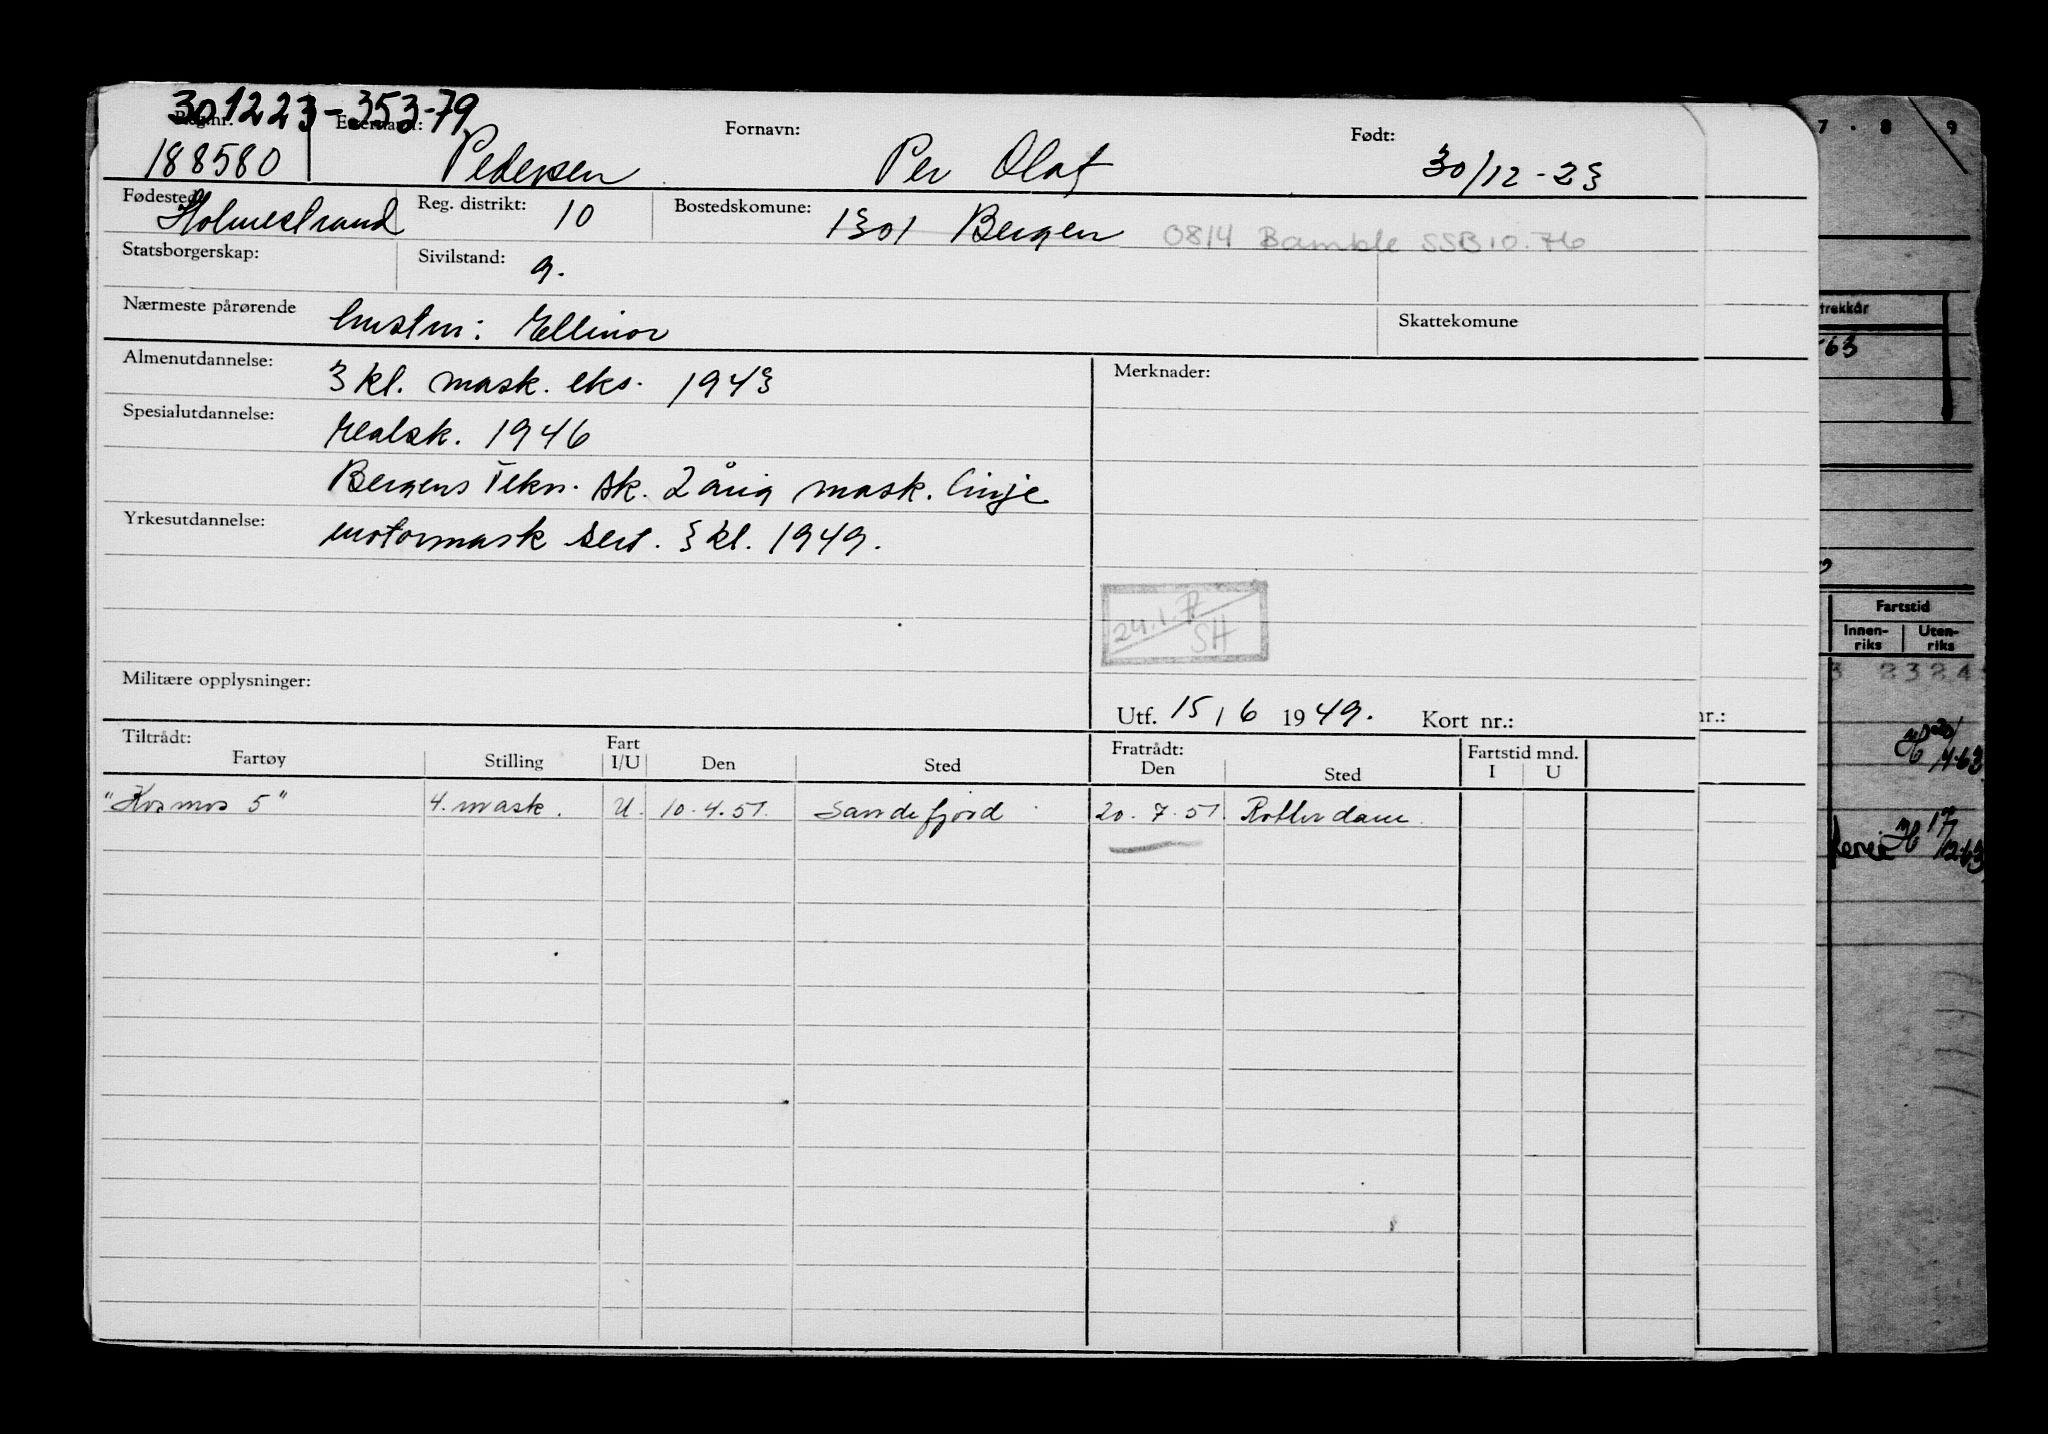 301223-353-79
Reg.nr. Etternavn: Fornavn: Født:
188580 Pedersen Per Olaf 30/12-23
Fødested: Holmestrand Reg. distrikt: 10 Bostedskomune: 1301 Bergen 0814 Bamble SSB 10.76
Statsborgerskap: Sivilstand: g.
Nærmeste pårørende hustru: Ellinor Skattekomune
Almenutdannelse: 3 kl. mask. eks. 1943 Merknader:
Spesialutdannelse: Realsk. 1946
Bergens Tekn. sk. 2 årig mask. linje
Yrkesutdannelse: motormask sert. 3 kl. 1949.
24.1.77
SH
Militære opplysninger:
Utf. 15/6 1949. Kort nr.:
Tiltrådt: Fratrådt:
Fartøy Stilling Fart I/U Den Sted Den Sted Fartstid mnd. I U
"Kosmos 5" 4. mask. U. 10.4.51. Sandefjord 20.7.51. Rotterdam
nr.:
7 . 8 9
trekkår
63
Fartstid
Innen-
riks
Uten-
riks
3 2324